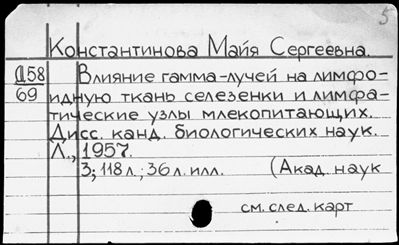 5
Константинова Майя Сергеевна.
Д58
69
Влияние гамма-лучей на лимфо-
идную ткань селезенки и лимфа-
тические узлы млекопитающих.
Дисс. канд. биологических наук.
Л., 1957.
3; 118 л.; 36 л. илл. (Акад. наук
см. след. карт